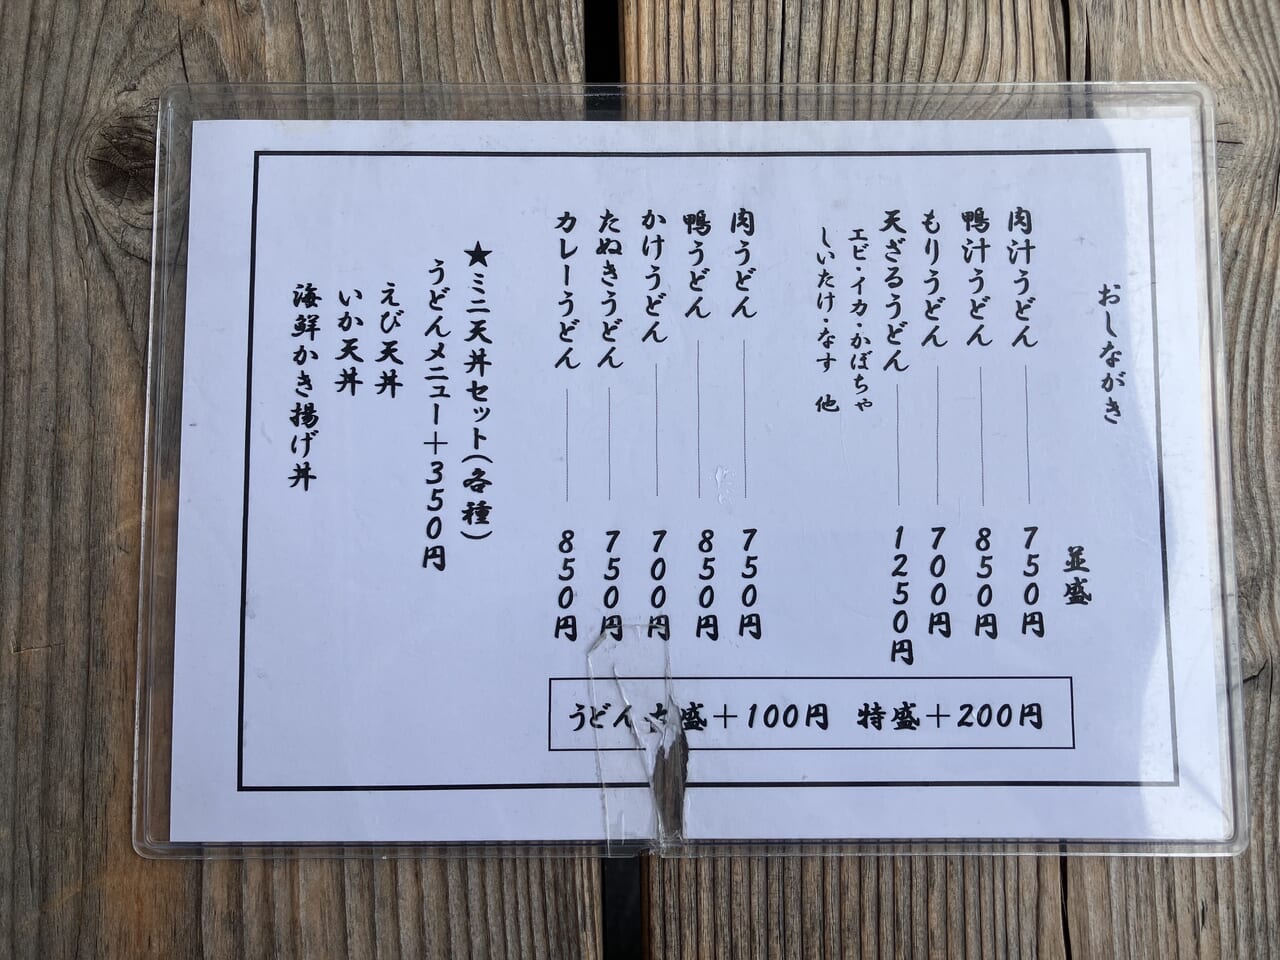 おしながき
並盛
肉汁うどん 750円
鴨汁うどん 850円
もりうどん 700円
天ざるうどん 1250円
エビ・イカ・かぼちゃ
しいたけ・なす 他
肉うどん 750円
鴨うどん 850円
かけうどん 700円
たぬきうどん 750円
カレーうどん 850円
★ミニ天丼セット(各種)
うどんメニュー＋350円
えび天丼
いか天丼
海鮮かき揚げ丼
うどん大盛＋100円 特盛＋200円